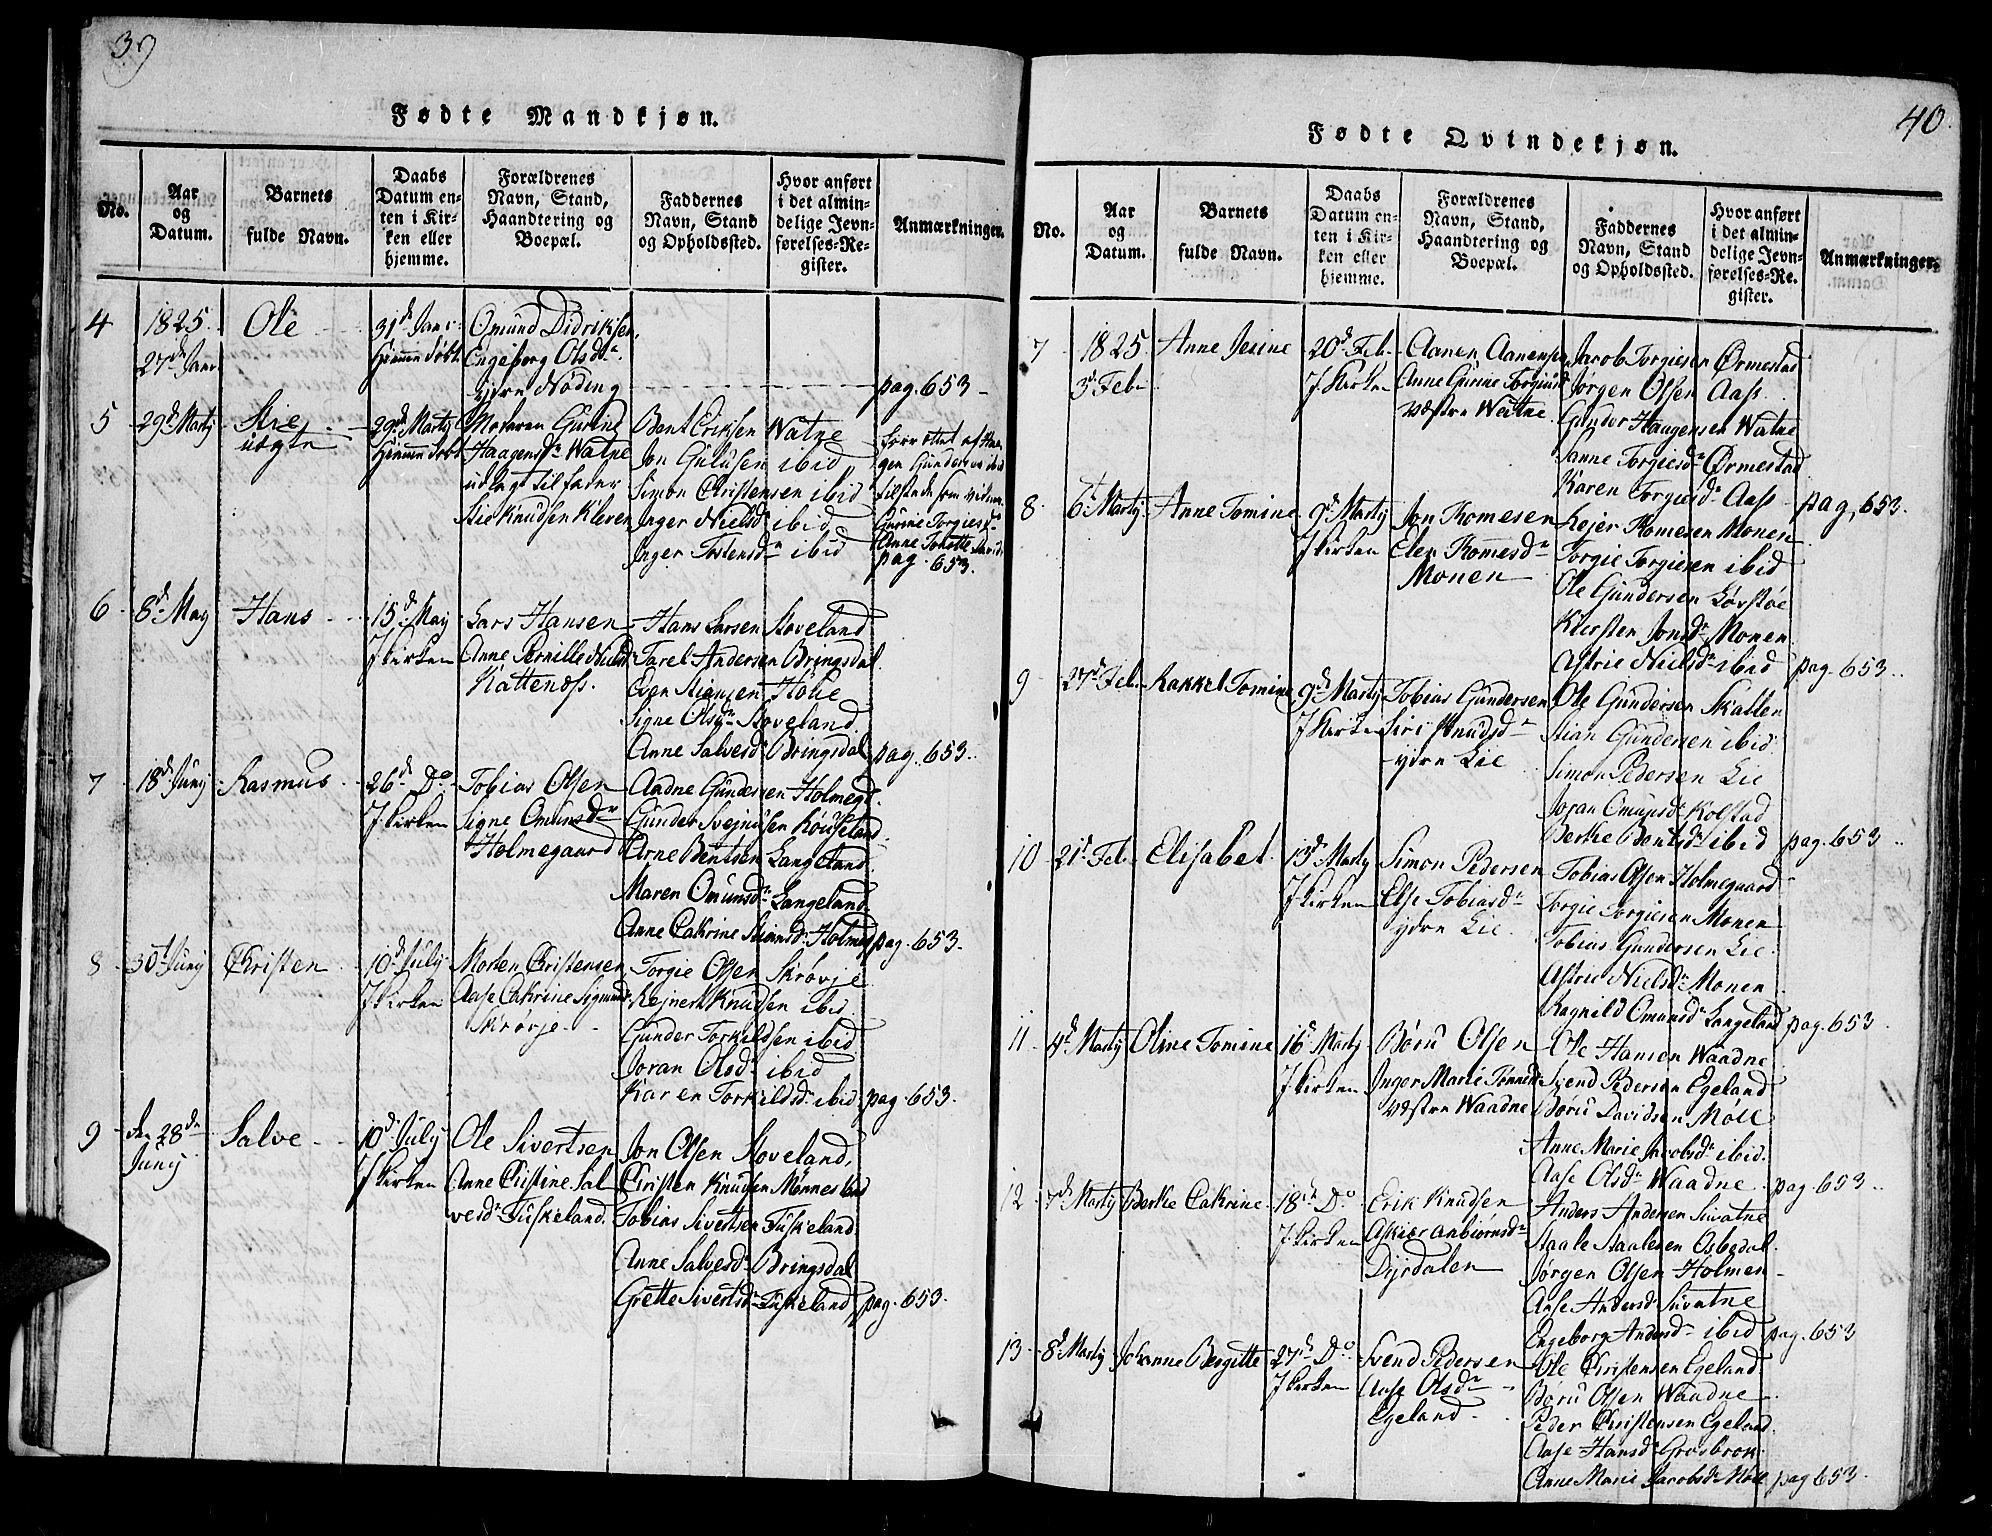 39
Fødte Mandkjøn.
No.
Aar
og
Datum.
Barnets
fulde Navn.
Daabs
Datum en-
ten i Kir-
ken eller
hjemme.
Forældrenes
Navn, Stand,
Haandtering og
Boepæl.
Faddernes
Navn, Stand
og Opholdssted.
Hvor anført
i det almin-
delige Jevn-
førelses-Re-
gister.
Anmærkninger.
4
1825
27de Janr
Ole
31d Janr
hjemme døbt
Omund Didriksen
Engeborg Olsdr
ydre Nøding
pag. 653
5
29d Marty
Stie
uægte
29d Marty
hjemme døbt
Moderen Gurine
Haagensdr Watne
udlagt til fader
Stie Knudsen Kleven
Bent Eriksen Watne
Jon Gulusen ibid
Simon Christensen ibid
Inger Nielsdr ibid
Inger Tostensdr ibid
forrettet af Haa-
gen Gundersen ibid
tilstede som vidne
Gurine Torgiesdr
Anne Tonette
pag. 653.
6
8d May
Hans
15d May
J Kirken
Lars Hansen
Anne Pernille Nielsdr
Kattenøss.
Hans Larsen Stoveland
Tarel Andersen Bringsdal
Even Stensen Holie
Signe Olsdr Stoveland
Anne Salvesdr Bringsdal
pag. 653
7
18d Juny
Rasmus
26d Do
J Kirken
Tobias Olsen
Signe Omunsdr
Holmegaard
Aadne Gundersen Holmegd
Gunder Svejnusen Røuseland
Arne Bentsen Langeland
Maren Omunsdr Langeland
Anne Cathrine Stiansdr Holmeg
pag. 653
8
30d Juny
Christen
10d July
J Kirken
Morten Christensen
Aase Cathrine Sigmunds
Skrøvje
Torgie Olsen Skrøvje
Rejnert Knudsen ibid
Gunder Torkildsen ibid
Joran Olsdr ibid
Karen Torkildsdr ibid
pag. 653.
9
den 28de
Juny
Salve
10d July
J Kirken
Ole Sivertsen
Anne Christine Sal
vesdr Fuskeland
Jon Olsen Stoveland,
Christen Knudsen Mønnes
Tobias Sivertsen Fuskeland
Anne Salvesdr Bringsdal
Grette Sivertsdr Fuskeland
pag. 653.
40
Fødte Qvindekjøn.
No.
Aar
og
Datum.
Barnets
fulde Navn.
Daabs
Datum en-
ten i Kir-
ken eller
hjemme.
Forældrenes
Navn, Stand,
Haandtering og
Boepæl.
Faddernes
Navn, Stand
og Opholdssted.
Hvor anført
i det almin-
delige Jevn-
førelses-Re-
gister.
Anmærkninger.
7
1825
3d Feb.
Anne Jesine
20d Feb.
J Kirken
Aanen Aanensen
Anne Gurine Torgiusd
væstre Watne
Jacob Torgiesen Ørmestad
Jørgen Olsen Aass
Gunder Haagensen Watne
Sanne Torgiesdr Ørmestad
Karen Torgiesdr Aass
pag. 653
8
6d Marty
Anne Tomine
9d Marty
J Kirken
Jon Tromesen
Elen Tromesdr
Monen
Rejer Tromesen Monen
Torgie Torgiesen ibid
Ole Gundersen Løvstøe
Kiersten Jonsdr Monen
Astrie Nielsdr ibid
pag. 653
9
27d Feb.
Rakkel Tomine
9d Marty
J Kirken
Tobias Gundersen
Siri Knudsdr
ydre Lie
Ole Gundersen Skatten
Stian Gundersen ibid.
Simon Pedersen Lie
Joran Omunsdr Kolstad
Berthe Bentsdr ibid
pag. 653
10
21d Feb.
Elisabet
13d Marty
J Kirken
Simon Pedersen
Else Tobiasdr
ydre Lie
Tobias Olsen Holmegaard
Torgie Torgiesen Monen
Tobias Gundersen Lie.
Astrie Nielsdr Monen
Ragnild Omunsdr Langeland
pag. 653
11
4d Marty
Oline Tomine
16d Marty
J Kirken
Børu Olsen
Inger Marie Tønnesd
væstre Waadne
Ole Hansen Waadne
Svend Pedersen Egeland
Børu Davidsen Moll
Anne Marie Jacobsdr ibid.
Aase Olsdr Waadne
pag. 653
12
7d Marty
Berthe Cathrine
18d Do
J Kirken
Erik Knudsen
Askier Anbiørnsdr
Dyrdalen
Anders Andersen Suvatne
Staale Staalesen Osbedal
Jørgen Olsen Holmen
Aase Andersdr Suvatne
Engeborg Andersdr ibid
pag. 653
13
8d Marty
Johanne Bergitte
27d Do
J Kirken
Svend Pedersen
Aase Olsdr
Egeland
Ole Christensen Egeland
Børu Olsen Waadne
Peder Christensen Egeland
Aase Hansdr Grosbrok
Anne Marie Jacobsdr Moll
pag 653